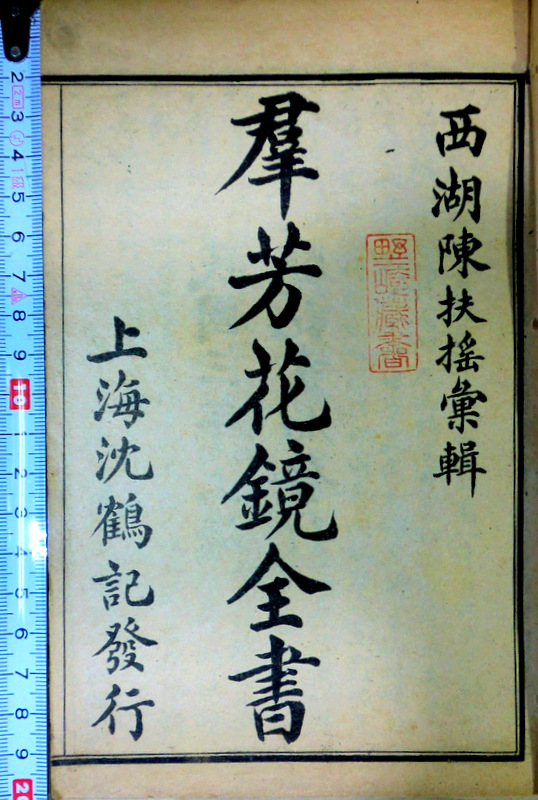 西湖陳扶搖彙輯
羣芳花鏡全書
上海沈鶴記發行
2
3
4
5
6
7
8
9
10
1
2
3
4
5
6
7
8
9
20